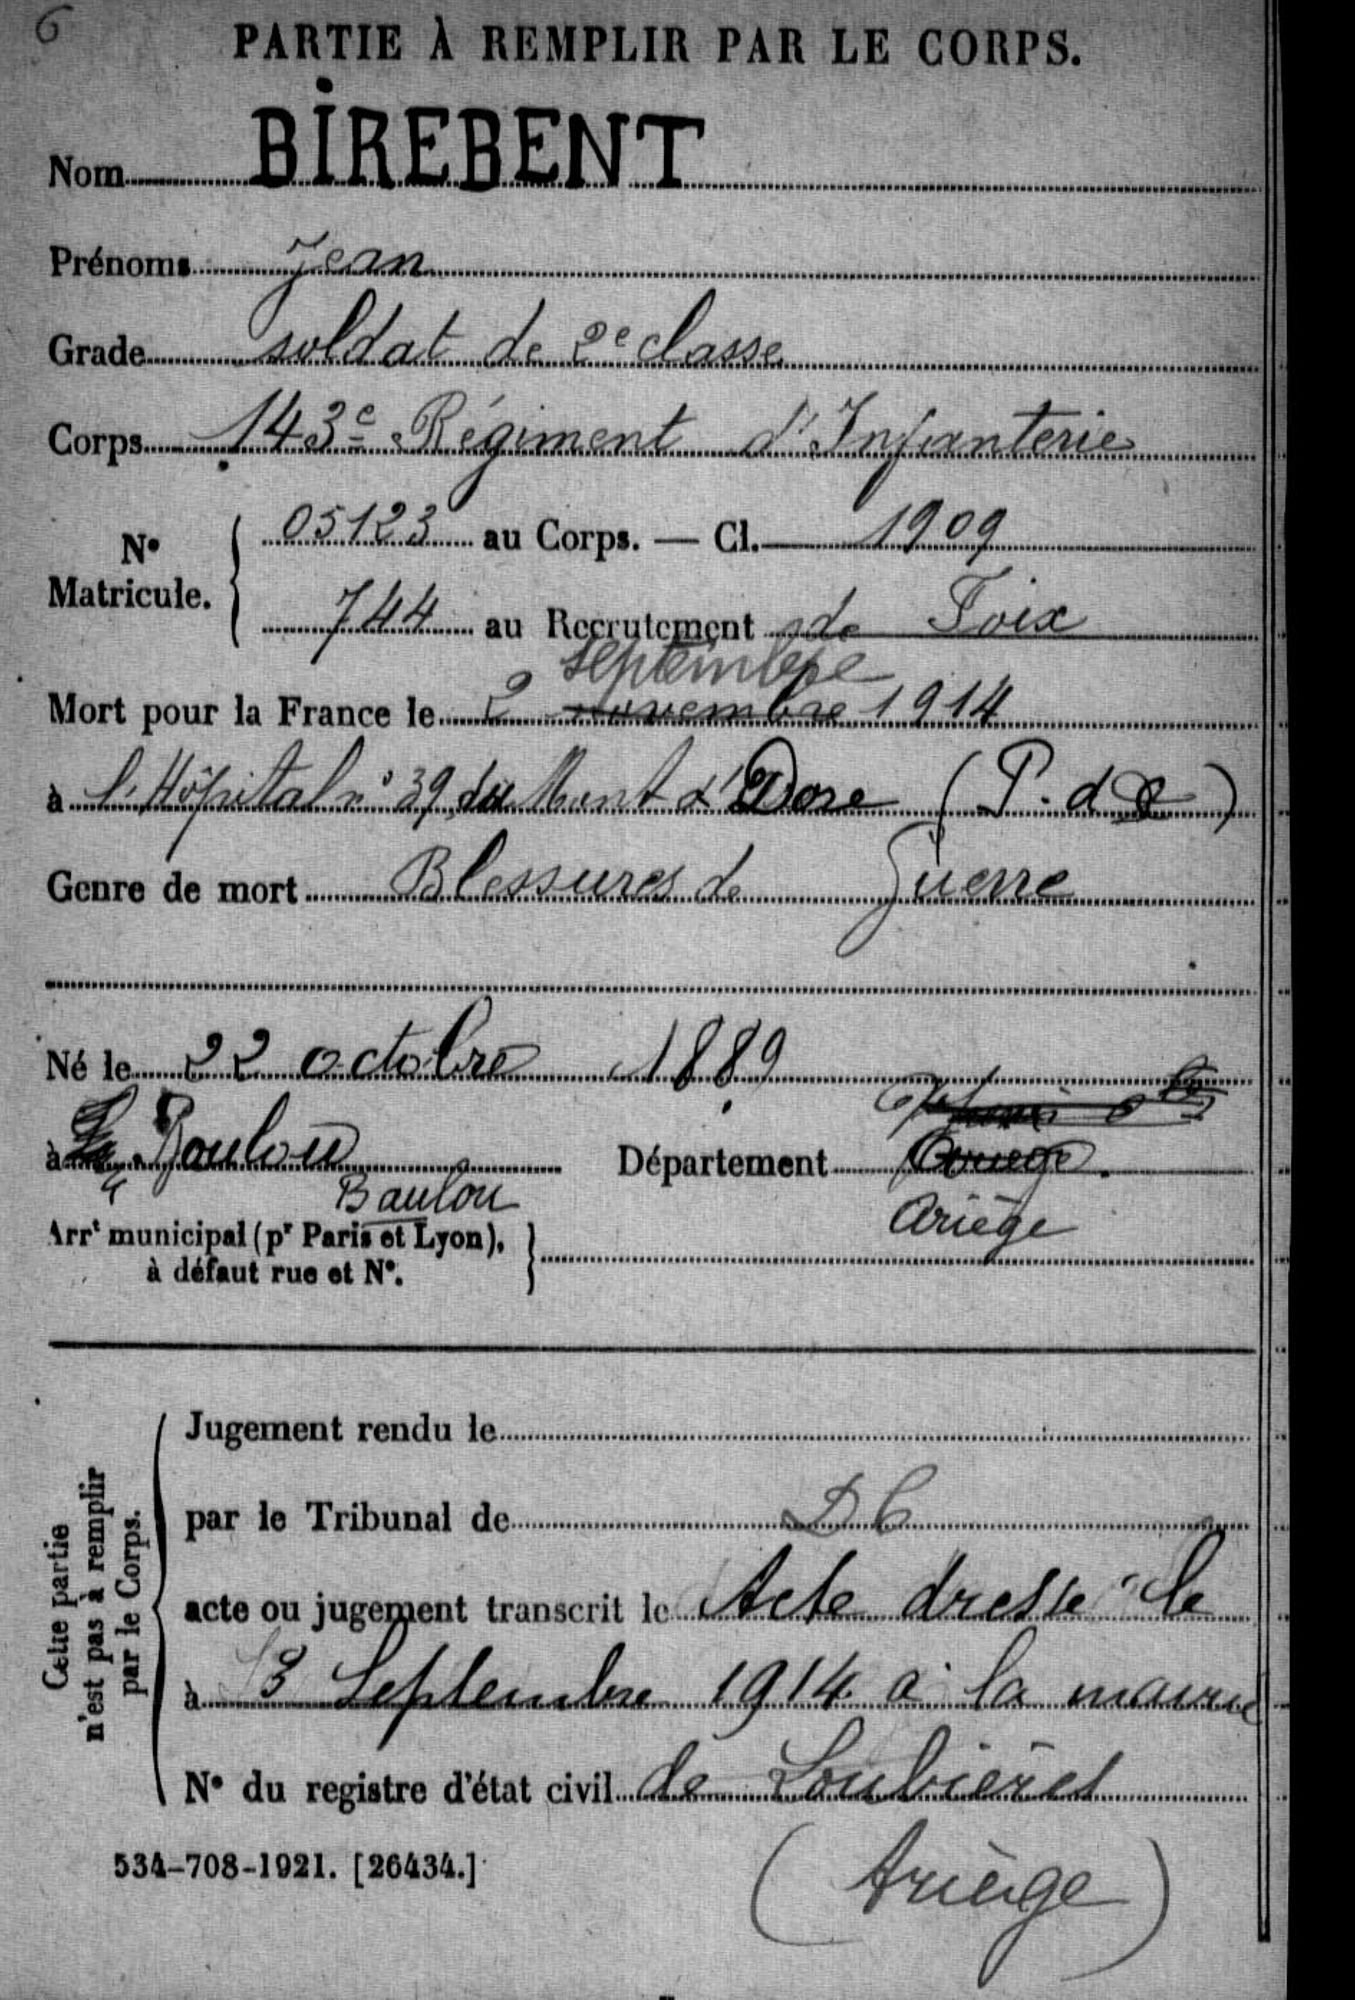 6
PARTIE À REMPLIR PAR LE CORPS.
Nom BIREBENT
Prénoms Jean
Grade soldat de 2e classe
Corps 143e Régiment d'Infanterie
N° Matricule. 05123 au Corps. — Cl. 1909
744 au Recrutement de Foix
septembre
Mort pour la France le 2 novembre 1914
à l'Hôpital n° 39 du Mont d'Dore (P. d D)
Genre de mort Blessures de Guerre
Né le 22 octobre 1889
à Boulou Département Ariège
Baulou Ariège
Arrt municipal (pr Paris et Lyon),
à défaut rue et N°.
Cette partie
n'est pas à remplir
par le Corps.
Jugement rendu le
par le Tribunal de DC
acte ou jugement transcrit le Acte dressé le
à 3 Septembre 1914 à la mairie
N° du registre d'état civil de Loubières
534-708-1921. [26434.] (Ariège)